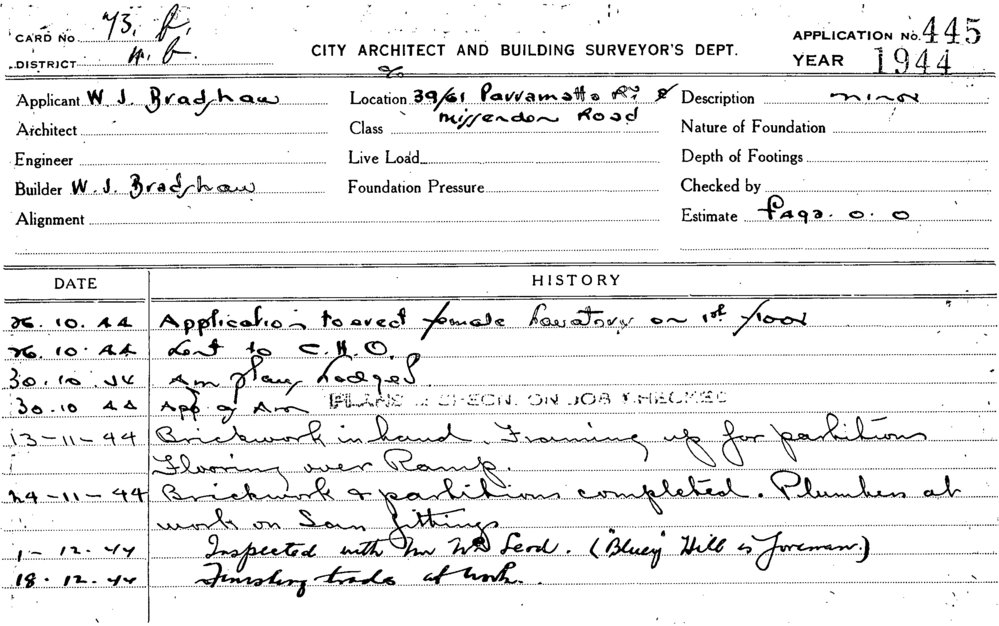 CARD No. 73. f.
DISTRICT
CITY ARCHITECT AND BUILDING SURVEYOR'S DEPT.
APPLICATION No. 445
YEAR 1944
Applicant W. J. Bradshaw
Architect
Engineer
Builder W. J. Bradshaw
Alignment
Location 39/61 Parramatta Rd &
Missenden Road
Class
Live Load
Foundation Pressure
Description minor
Nature of Foundation
Depth of Footings
Checked by
Estimate
DATE HISTORY
26.10.44 Application to erect female Lavatory on 1st floor
26.10.44 Sent to C.H.O.
30.10.44 Am plans Lodged.
30.10 44 App of Am PLANS & SPECN. ON JOB CHECKED
13-11-44 Brickwork in hand. Framing up for partitions
Flooring over Ramp.
24-11-44 Brickwork & partitions completed. Plumbers at
work on San fittings
1-12.44 Inspected with Mr McLeod. ("Bluey" Hill is foreman.)
18.12.44 Finishing trades at work.